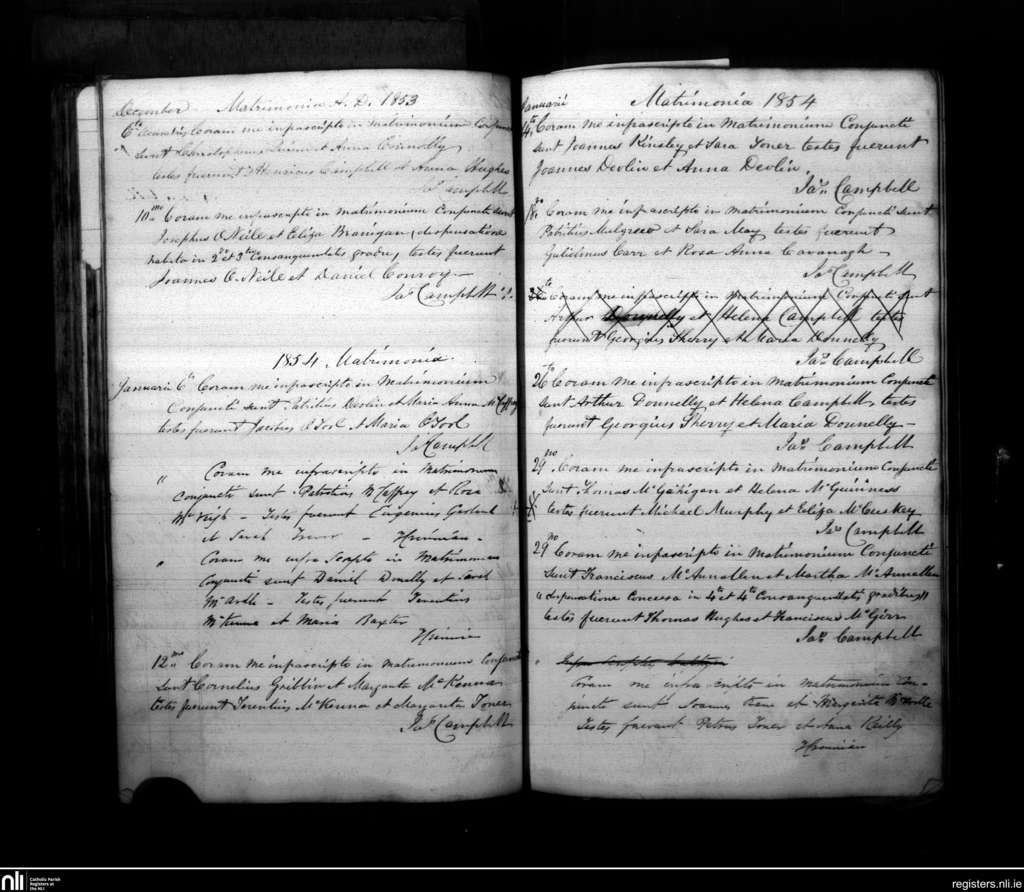 December Matrimonia A. D. 1853
6to Coram me infrascripto in matrimonium Conjuncti
sunt Christophorus et Anna Connolly
testes fuerunt Henricus Campbell et Anna Hughes
Jas Campbell
10mo Coram me infrascripto in matrimonium Conjuncti sunt
Josephus O Neile et Eliza Branigan, dispensatione
habita in 2do et 3tio Consanguinitatis gradu, testes fuerunt
Joannes O. Neile et Daniel Conroy —
Jas Campbell
1854 Matrimonia.
Januarii 6to Coram me infrascripto in Matrimonium
Conjuncti sunt Patritius Devlin et Maria Anna McCaffrey
testes fuerunt O Tool et Maria O Tool
Jas Campbell
" Coram me infrascripto in Matrimonium
conjuncti sunt Patritius McCaffrey et Rosa
McVeigh — Testes fuerunt Eugenius Garland
et Sarah —
" Coram me infra Scripto in Matrimonium
Conjuncti sunt Daniel Donelly et Sarah
McArdle — Testes fuerunt Terentius
McKenna et Maria Baxter
12mo Coram me infrascripto in matrimonium Conjuncti
sunt Cornelius Gribbin et Margarita McKenna
testes fuerunt Terentius McKenna et Margarita Toner
Jas Campbell
Januarii Matrimonia 1854
14to Coram me infrascripto in Matrimonium Conjuncti
sunt Joannes Kinsley et Sara Toner testes fuerunt
Joannes Devlin et Anna Devlin.
Jas Campbell
18vo Coram me infrascripto in Matrimonium Conjuncti sunt
Patritius Mulgrew et Sara May testes fuerunt
Gulielmus Carr et Rosa Anna Cavanagh —
Jas Campbell
Coram me infrascripto in Matrimonium Conjuncti sunt
Arthur Donnelly et Helena Campbell testes
fuerunt Georgius Sherry et Maria Donnelly
Jas Campbell
26to Coram me infrascripto in Matrimonium Conjuncti
sunt Arthur Donnelly et Helena Campbell, testes
fuerunt Georgius Sherry et Maria Donnelly —
Jas Campbell
29no Coram me infrascripto in Matrimonium Conjuncti
sunt Thomas McGahigan et Helena McGuinness
testes fuerunt Michael Murphy et Eliza McCuskey
Jas Campbell
29no Coram me infrascripto in Matrimonium Conjuncti
sunt Franciscus McAnnallen et Martha McAnnallen
" dispensatione Concessa in 4to et 4to Consanguinitatis gradibus
testes fuerunt Thomas Hughes et Franciscus McGirr
Jas Campbell
" Coram me infra scripto in matrimonium Con-
juncti sunt Joannes et Margarita McArdle
Testes fuerunt Petrus Toner et Anna Reilly
nli Catholic Parish
Registers at
the NLI
registers.nli.ie